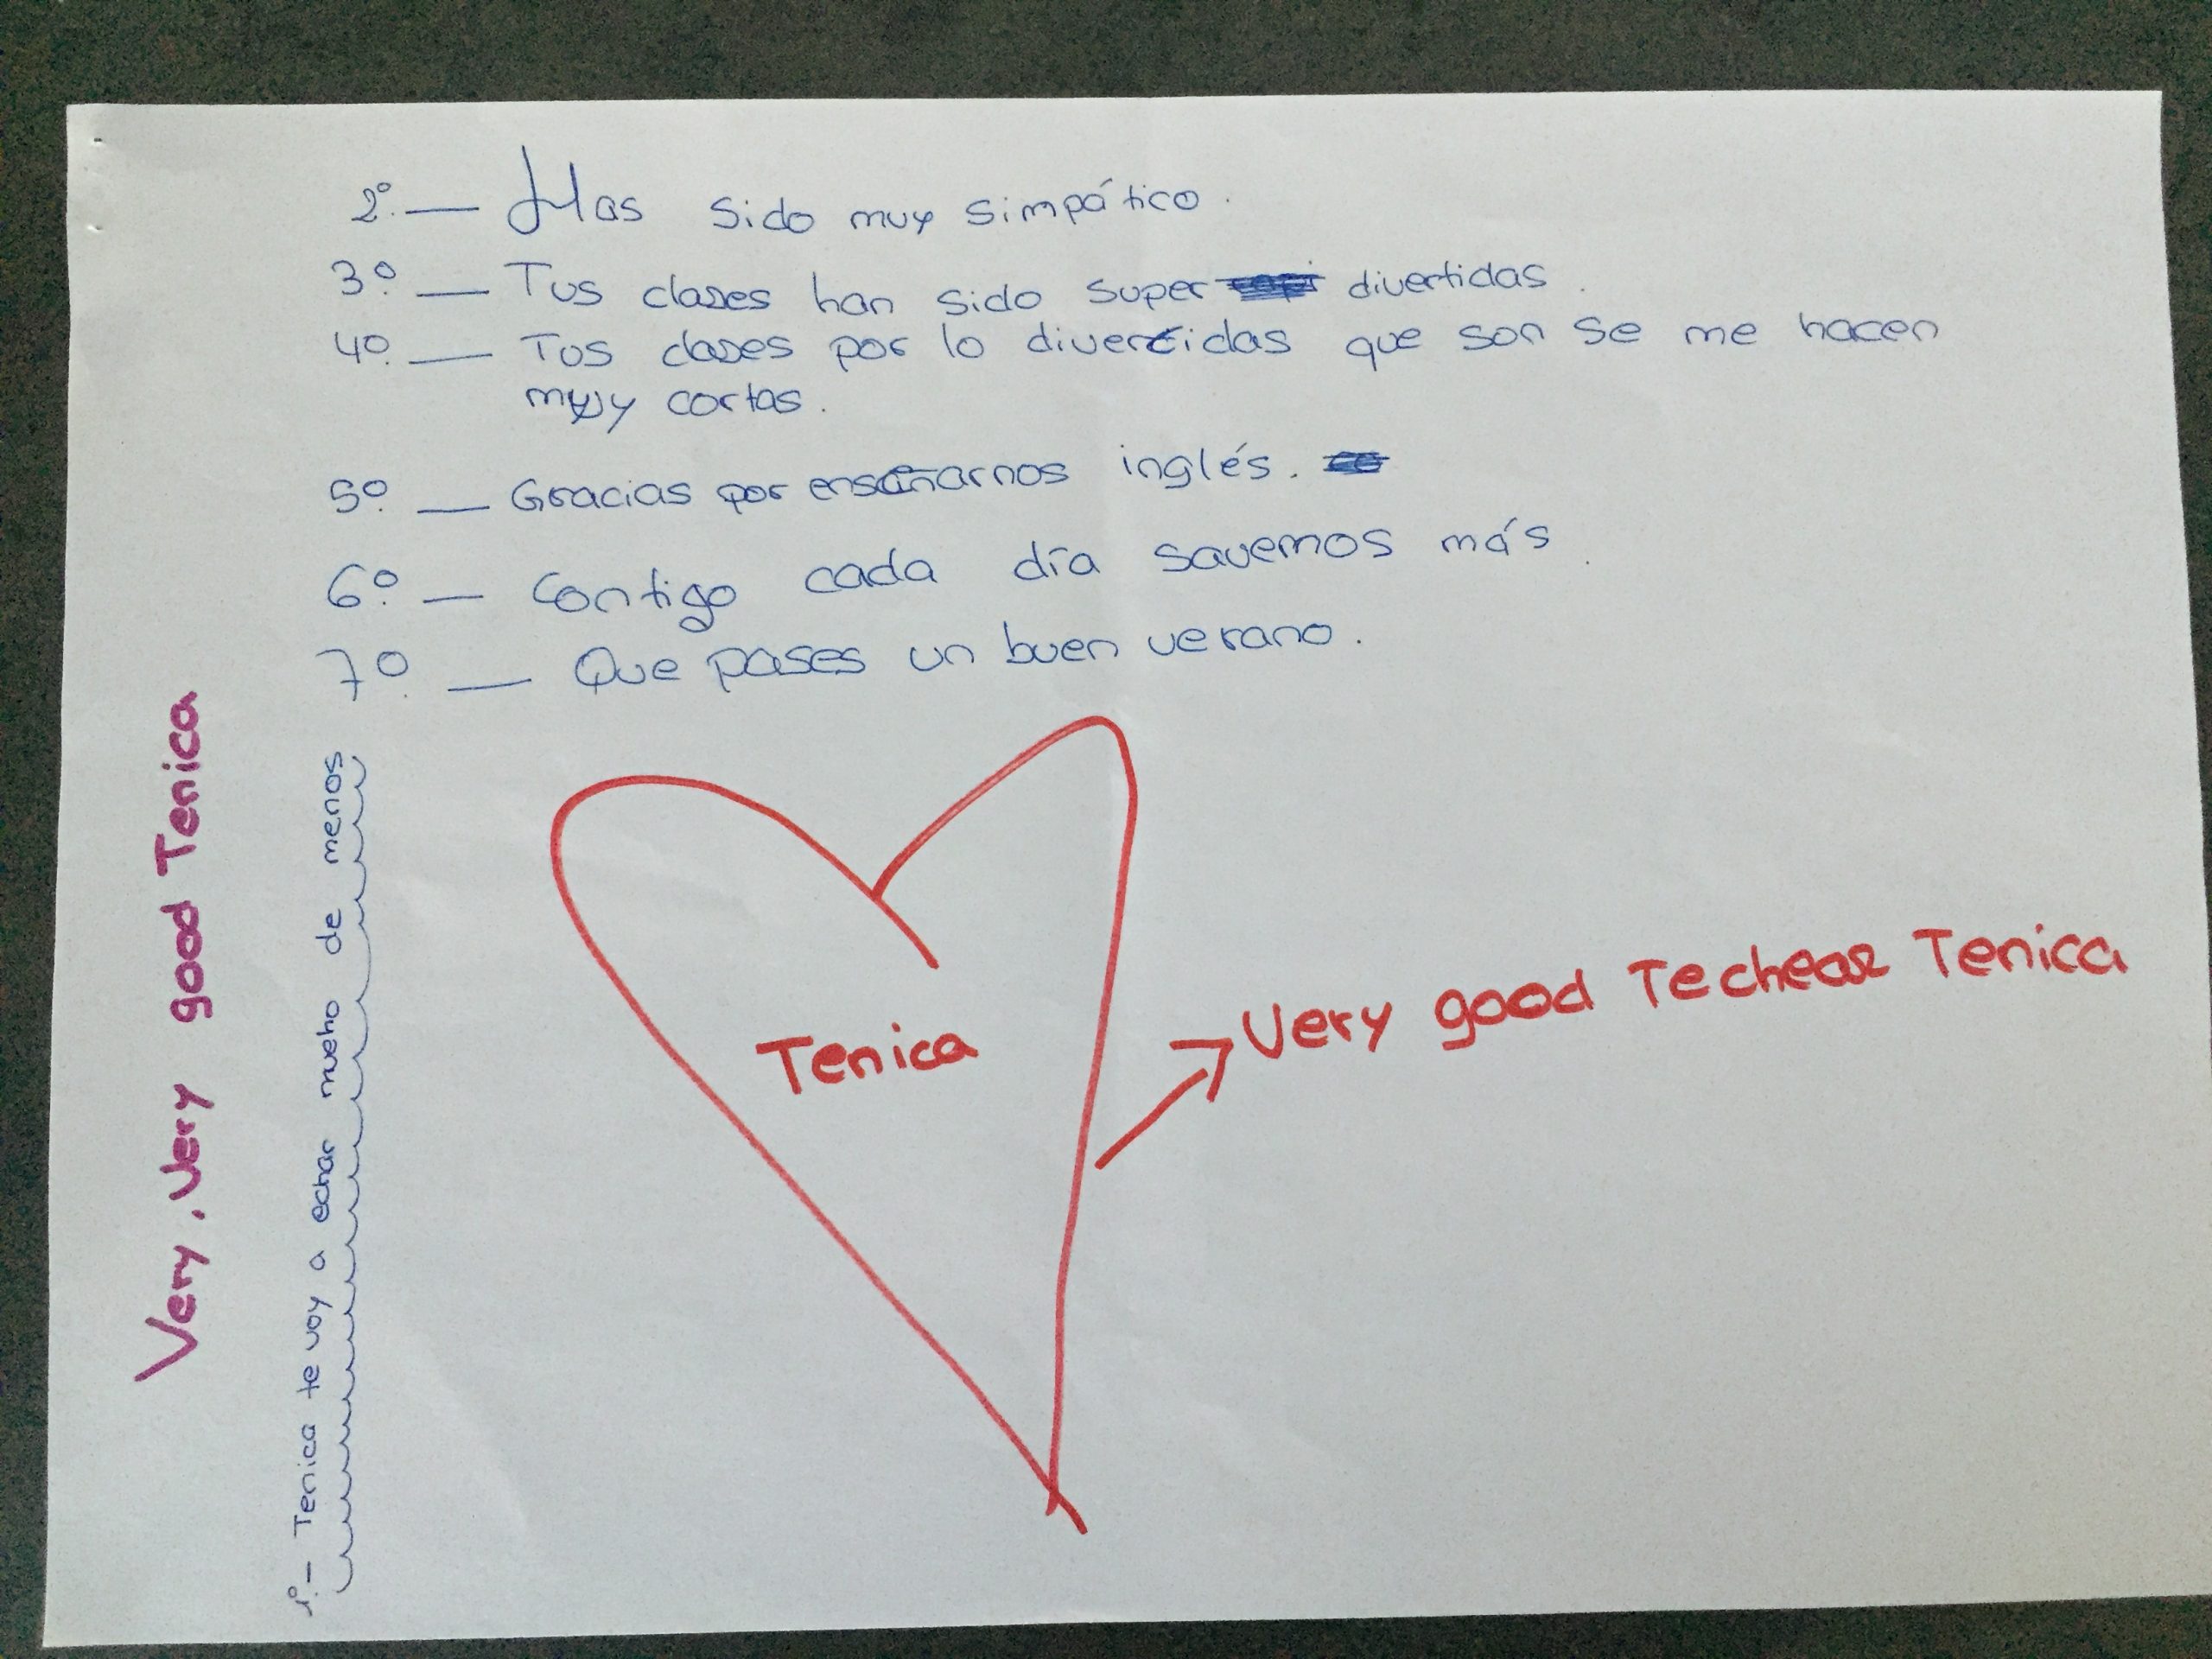 2º.— Has sido muy simpático.
3º. — Tus clases han sido super divertidas.
4º. — Tus clases por lo divertidas que son se me hacen
muy cortas.
5º. — Gracias por enseñarnos inglés.
6º. — Contigo cada día savemos más.
7º. — Que pases un buen verano.
Very, very good Tenica
1º.- Tenica te voy a echar mucho de menos
Tenica
Very good Techear Tenica